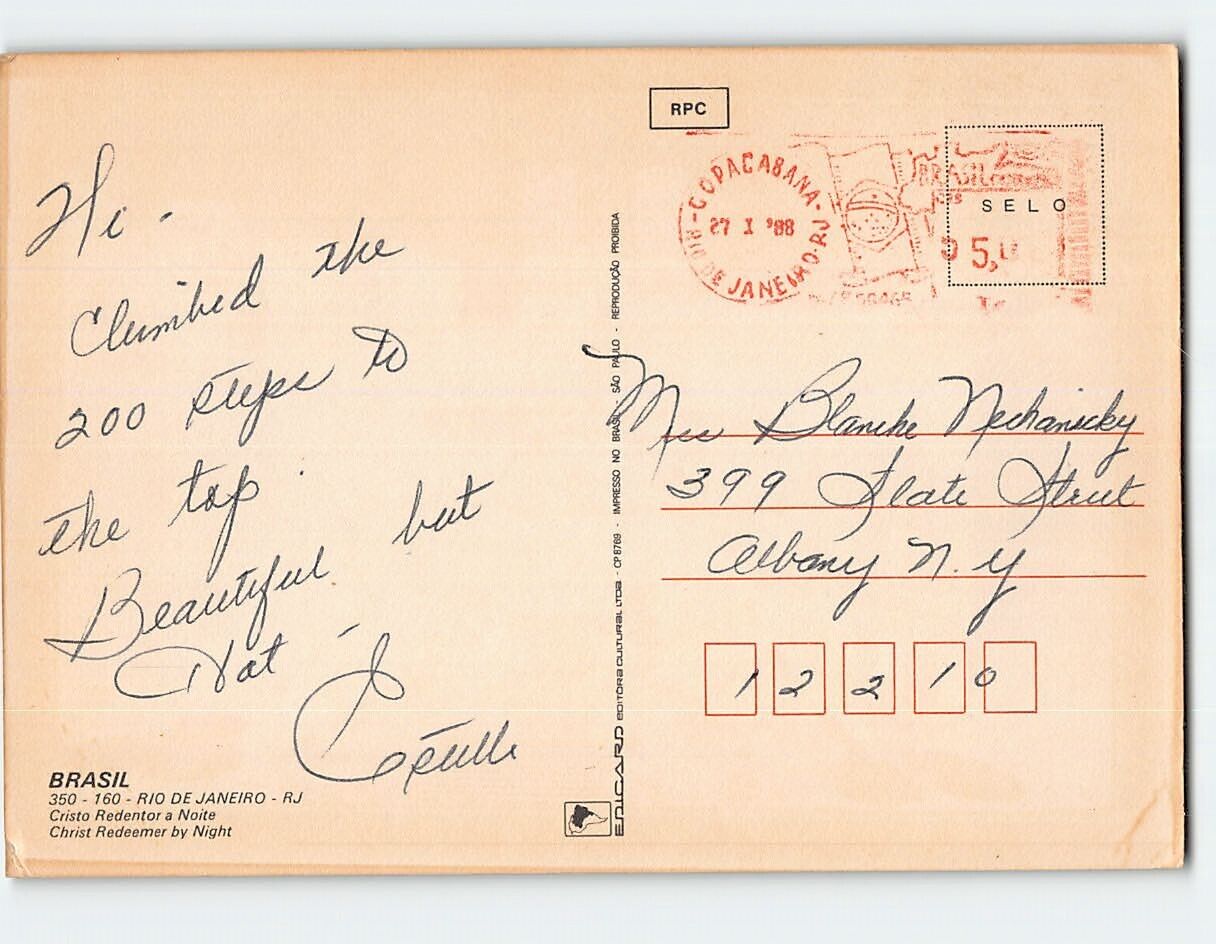 Hi -
Climbed the
200 steps to
the top.
Beautiful but
Hot -
Estelle
BRASIL
350 - 160 - RIO DE JANEIRO - RJ
Cristo Redentor a Noite
Christ Redeemer by Night
EDICARD EDITORA CULTURAL LTDA - CP 8769 - IMPRESSO NO BRASIL - SÃO PAULO - REPRODUÇÃO PROIBIDA
RPC
COPACABANA - RJ
27 I '88
RIO DE JANEIRO
BRASIL
SELO
5,
Mrs Blanche Nechanicky
399 State Street
Albany N.Y
12210